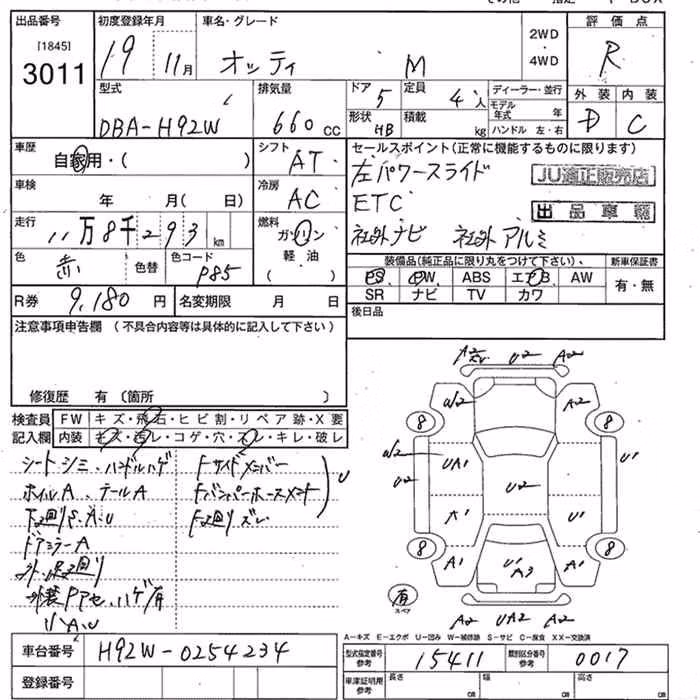 出品番号 初度登録年月 車名・グレード 評価点
[1845]
3011 19 11月 オッティ M 2WD・4WD R
型式 排気量 ドア 5 定員 4人 ディーラー・並行 外装 内装
DBA-H92W 660cc 形状 HB 積載 kg モデル年式 年 ハンドル 左・右 D C
車歴 自家用・( ) シフト AT セールスポイント(正常に機能するものに限ります)
左パワースライド JU適正販売店
車検 年 月( 日) 冷房 AC ETC 出品車輌
走行 11万8千293km 燃料 ガソリン 軽油 ( ) 社外ナビ 社外アルミ
色 赤 色替 色コード P85 装備品(純正品に限り丸をつけて下さい)、 新車保証書
PS PW ABS エアB AW 有・無
R券 9,180円 名変期限 月 日 SR ナビ TV カワ
注意事項申告欄 (不具合内容等は具体的に記入して下さい) 後日品
修復歴 有 (箇所 )
検査員 FW キズ・飛石・ヒビ割・リペア跡・X要
記入欄 内装 キズ・汚レ・コゲ・穴・スレ・キレ・破レ
シートシミ・ハンドルハゲ Fサイドメンバー
ホイルA、テールA Fバンパーホースメント U
下廻りS・A・U F廻りズレ
ドアミラーA
外・足廻り
外装Pアセ、ハゲ有
リA・U
A2 U2 A2
W2 A2
8 8
W2 U2 UA1 U2 U1
A1 U1
8 8
A1 U1 A3 A1
有 スペア
A2 UA2 A2
A-キズ E-エクボ U-凹み W-補修跡 S-サビ C-腐食 XX-交換済
車台番号 H92W-0254234 型式指定番号 参考 15411 類別区分番号 参考 0017
登録番号 車庫証明用 参考 長さ cm 幅 cm 高さ cm